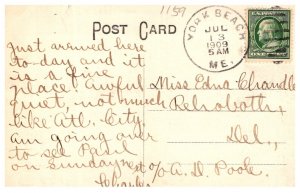 1159
POST CARD
YORK BEACH
JUL
13
1909
5 AM
ME.
Just arrived here
to-day and it
is a fine
place. Awful
quiet, not much
like Atl. City.
am going over
to see Paul
on sunday next
Miss Edna Chandle
Rehoboth
Del.,
c/o A. D. Poole.